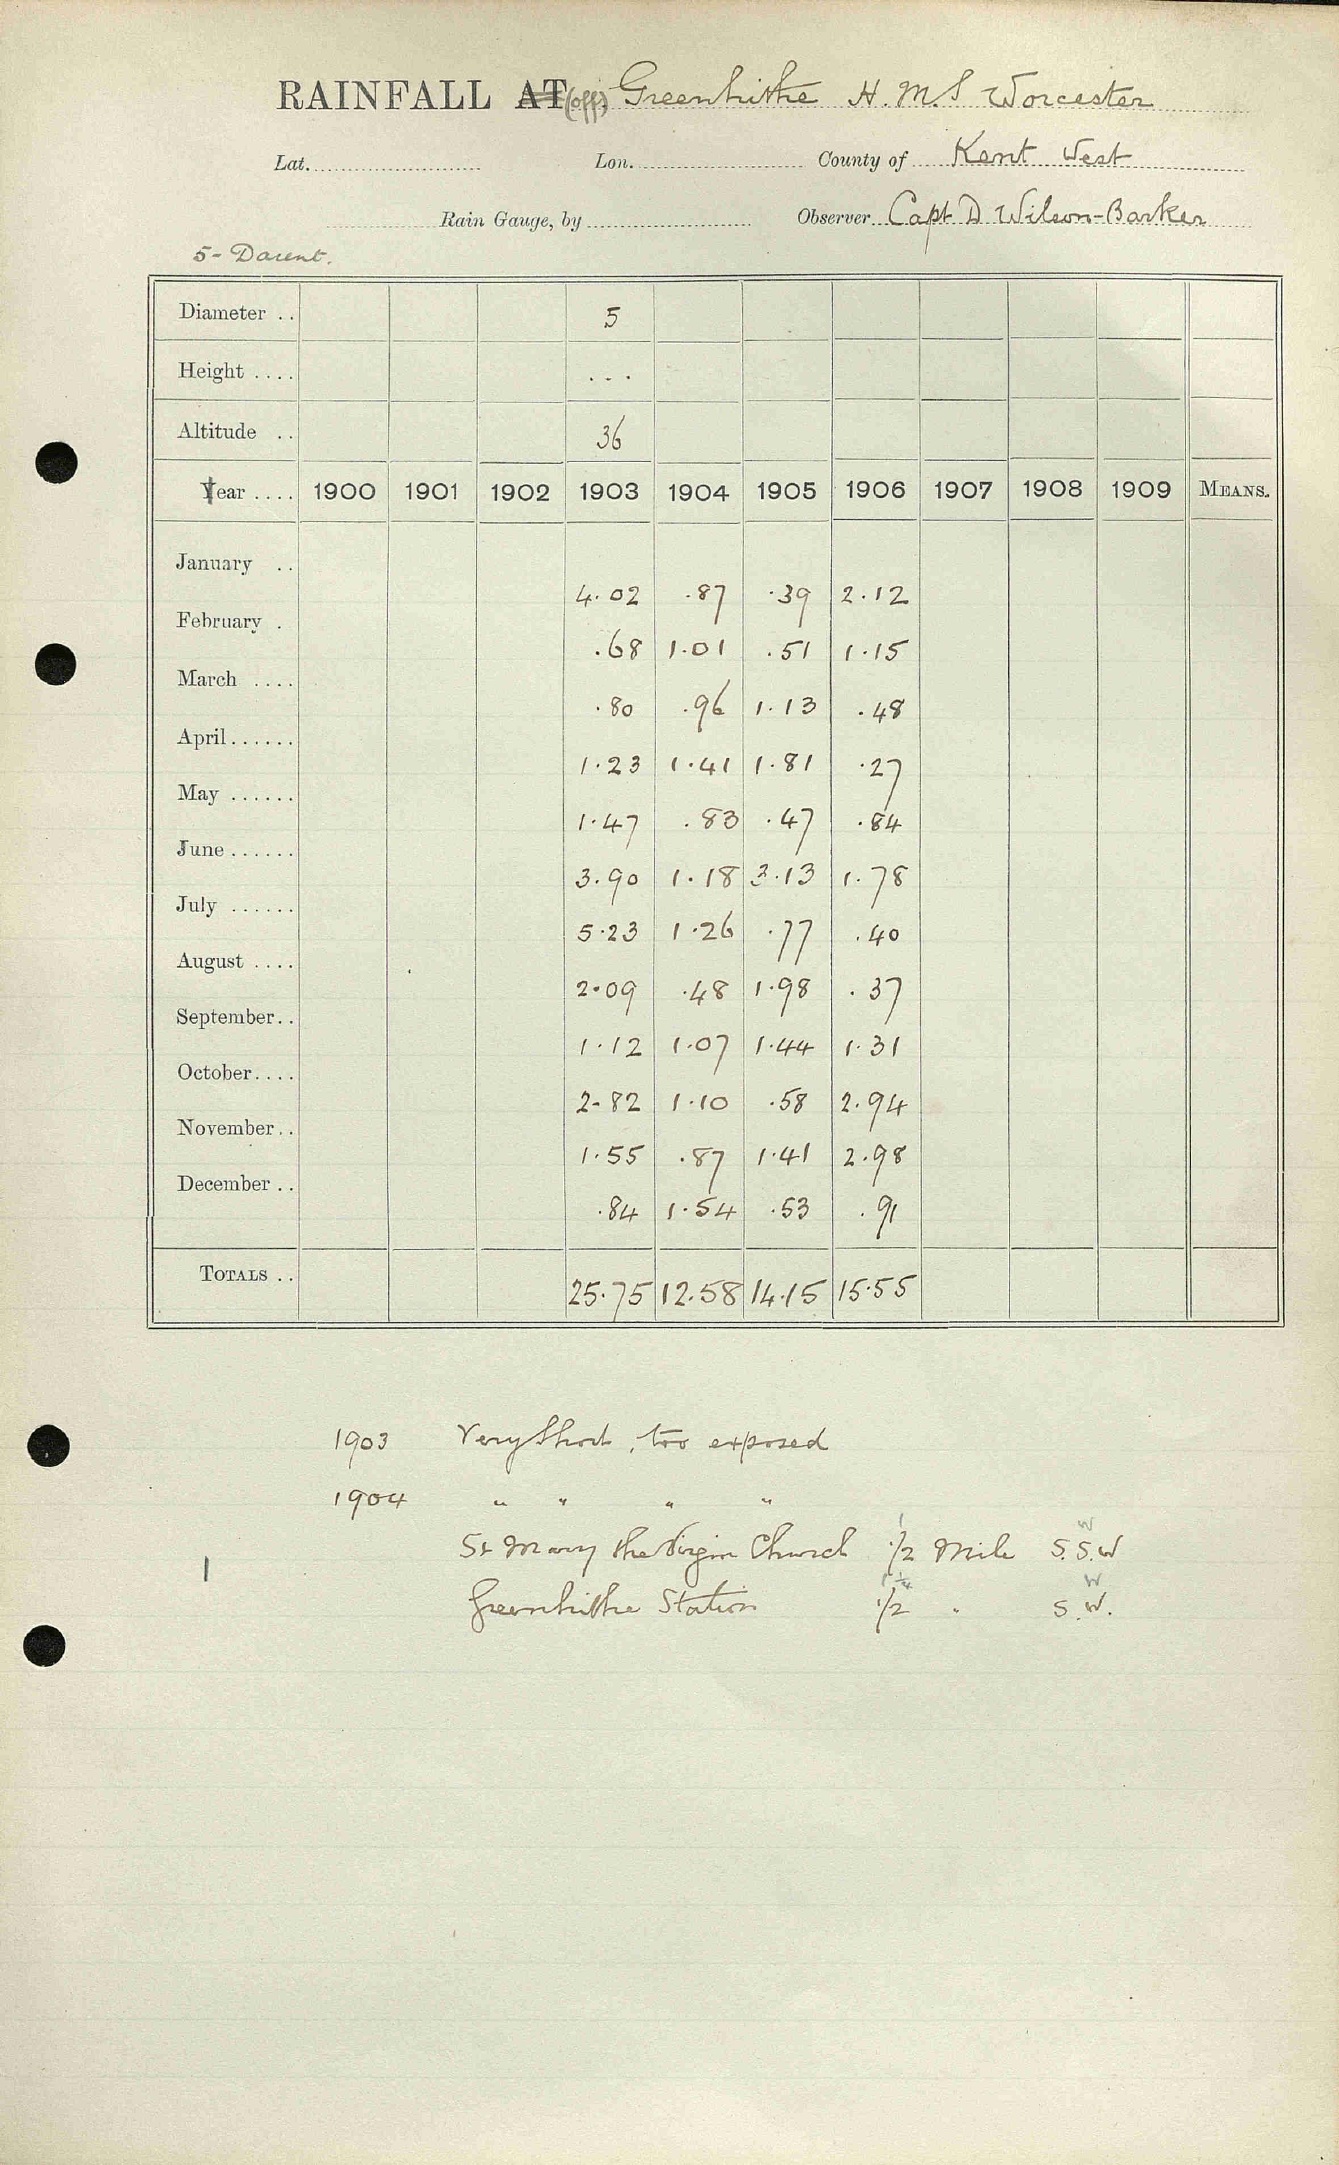 RAINFALL AT (off) Greenhithe H.M.S Worcester
Lat. Lon. County of Kent West
Rain Gauge, by Observer Capt. D Wilson-Barker
5- Darent.
Diameter .. 5
Height .... ...
Altitude .. 36
Year .... 1900 1901 1902 1903 1904 1905 1906 1907 1908 1909 MEANS.
January .. 4.02 .87 .39 2.12
February . .68 1.01 .51 1.15
March .... .80 .96 1.13 .48
April...... 1.23 1.41 1.81 .27
May ...... 1.47 .83 .47 .84
June ...... 3.90 1.18 3.13 1.78
July ...... 5.23 1.26 .77 .40
August .... 2.09 .48 1.98 .37
September.. 1.12 1.07 1.44 1.31
October.... 2.82 1.10 .58 2.94
November.. 1.55 .87 1.41 2.98
December .. .84 1.54 .53 .91
TOTALS .. 25.75 12.58 14.15 15.55
1903 Very Short, too exposed
1904 " " " "
St Mary the Virgin Church 1/2 Mile S.S.W
Greenhithe Station 1/2 " S.W.